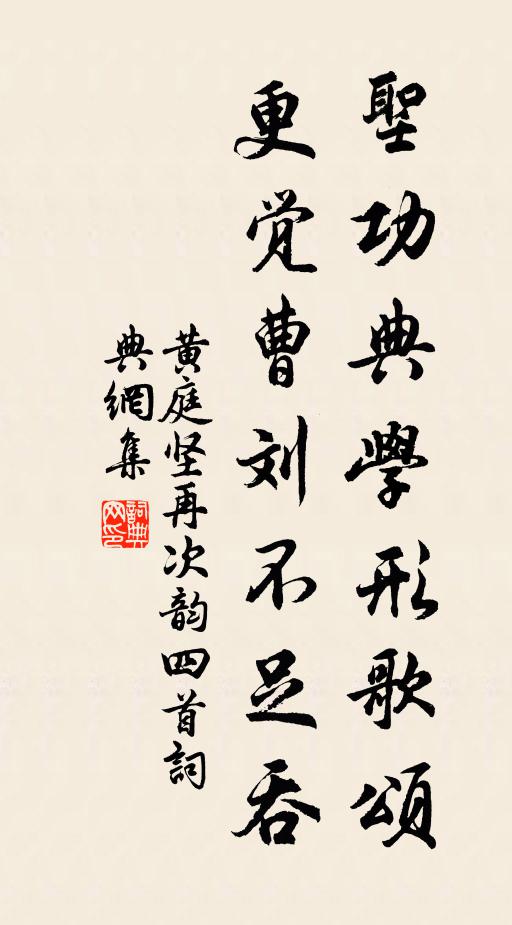 聖功典學形歌頌
更觉曹刘不足吞
黄庭坚再次韵四首詞
典網集
詞典网印